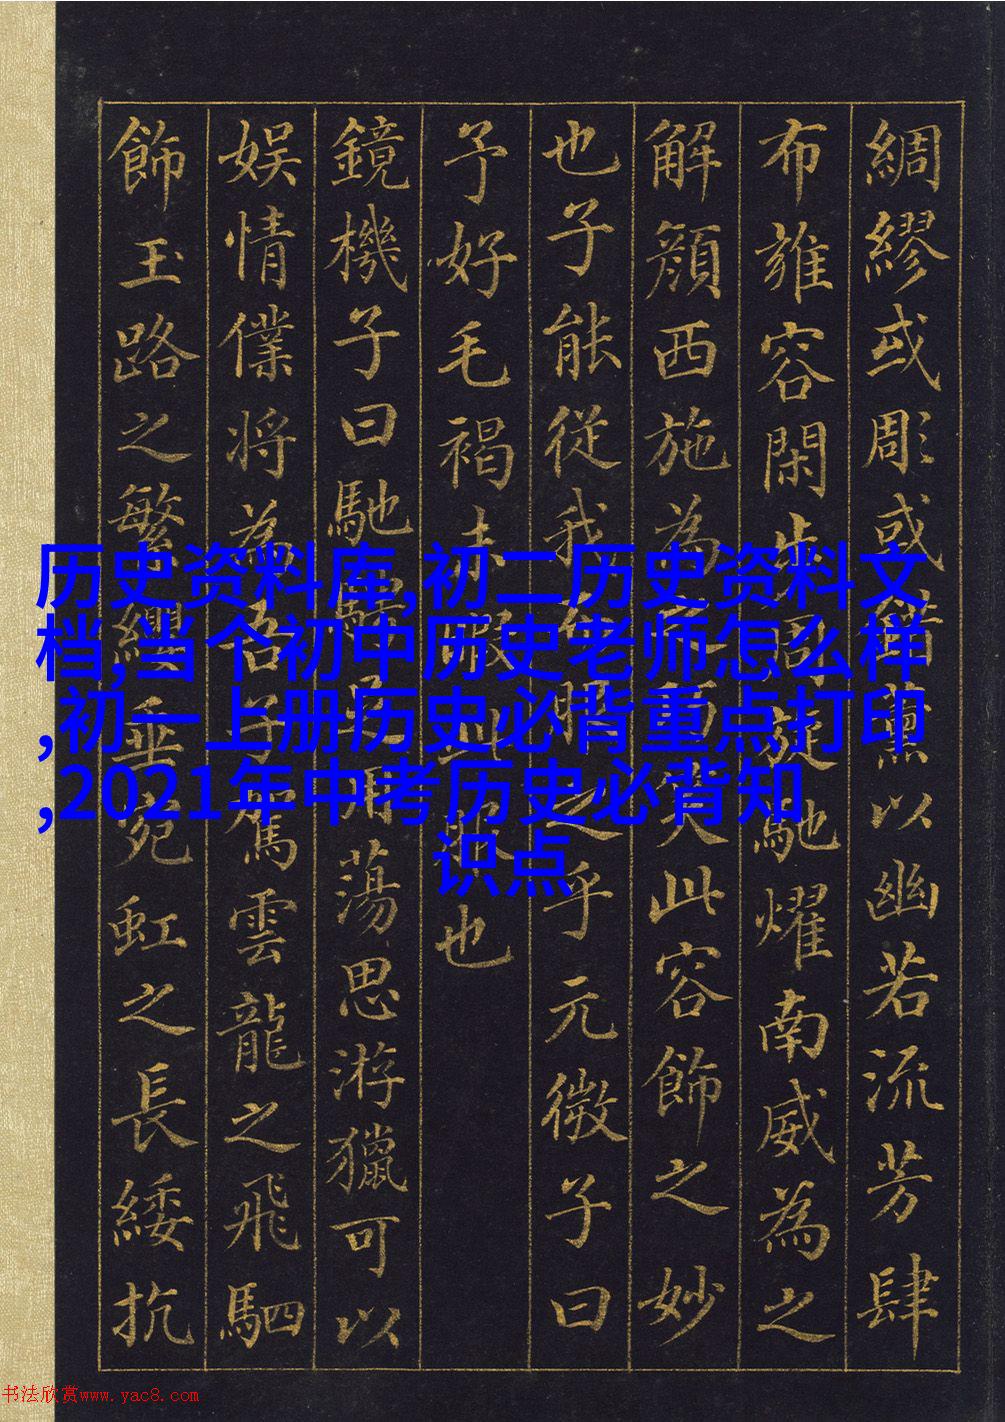 綢繆或彫或錯薰以幽若流芳肆
布雍容閑步周旋馳耀南威為之
解顏西施為之巧笑此容飾之妙
也子能從我而服之乎元微子曰
予好毛褐未暇此服也
鏡機子曰馳騁足用蕩思游獵可以
娛情僕將為吾子駕雲龍之飛駟
飾玉路之繁纓垂宛虹之長綏抗
历史资料库,初二历史资料文
档,当个初中历史老师怎么样
,初一上册历史必背重点打印
,2021年中考历史必背知
识点
书法欣赏www.yac8.com